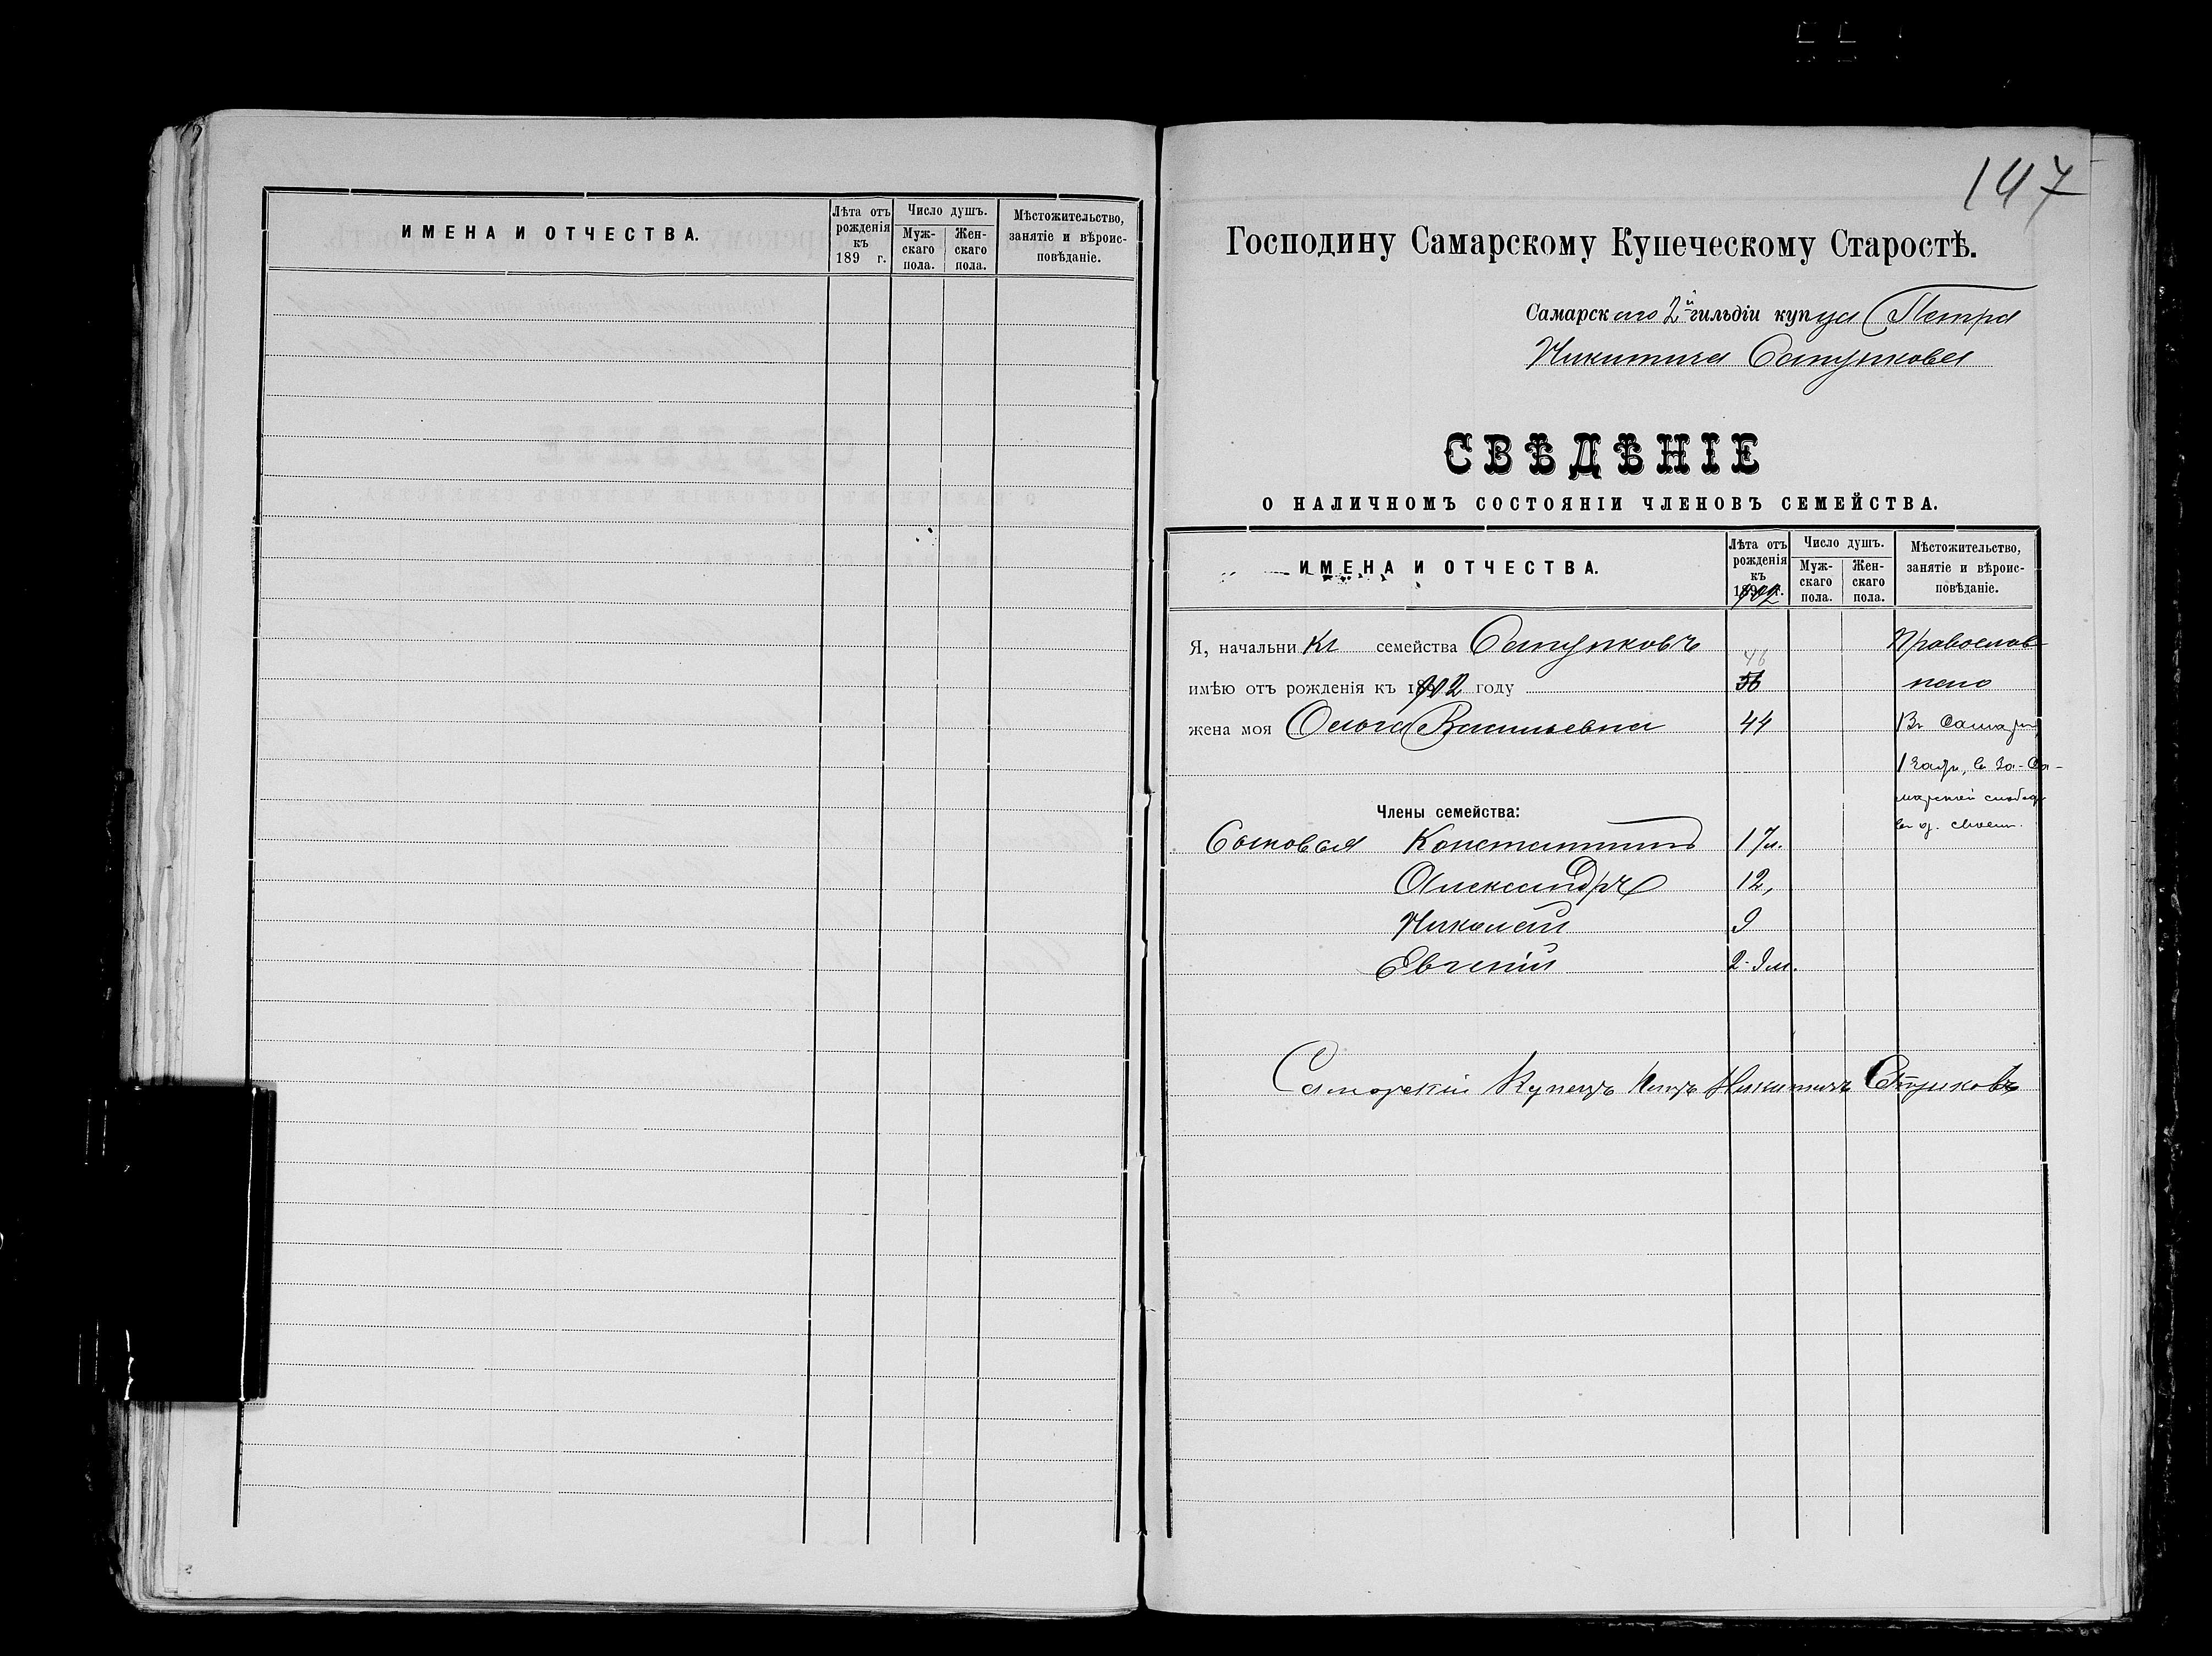 ИМЕНА И ОТЧЕСТВА.
Лѣта отъ рожденія къ 189 г.
Число душъ.
Мужскаго пола.
Женскаго пола.
Мѣстожительство, занятіе и вѣроисповѣданіе.
147
Господину Самарскому Купеческому Старостѣ.
Самарскаго 2й гильдіи купца Петра
Никитича Сапункова
СВѢДѢНІЕ
О НАЛИЧНОМЪ СОСТОЯНІИ ЧЛЕНОВЪ СЕМЕЙСТВА.
ИМЕНА И ОТЧЕСТВА.
Лѣта отъ
рожденія
къ
1902 г.
Число душъ.
Муж-
скаго
пола.
Жен-
скаго
пола.
Мѣстожительство,
занятіе и вѣроис-
повѣданіе.
Я, начальникъ семейства Сапунковъ Православ-
46
имѣю отъ рожденія къ 1902 году 56
жена моя Ольга Васильевна 44 Въ Самарѣ,
1 части, в За-Са-
марской слобод
Члены семейства:
в д. своем.
Сыновья Константинъ 17 л.
Александръ 12,
Николай 9
Евгеній 2-9 м.
Самарскій Купецъ Петръ Никитичъ Сапунковъ